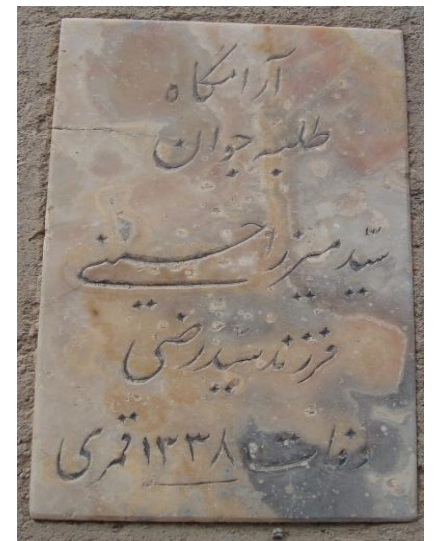 آرامگاه
طلبه جوان
سیّد میرزا حسینی
فرزند سیّد رضی
وفات ۱۳۳۸ قمری